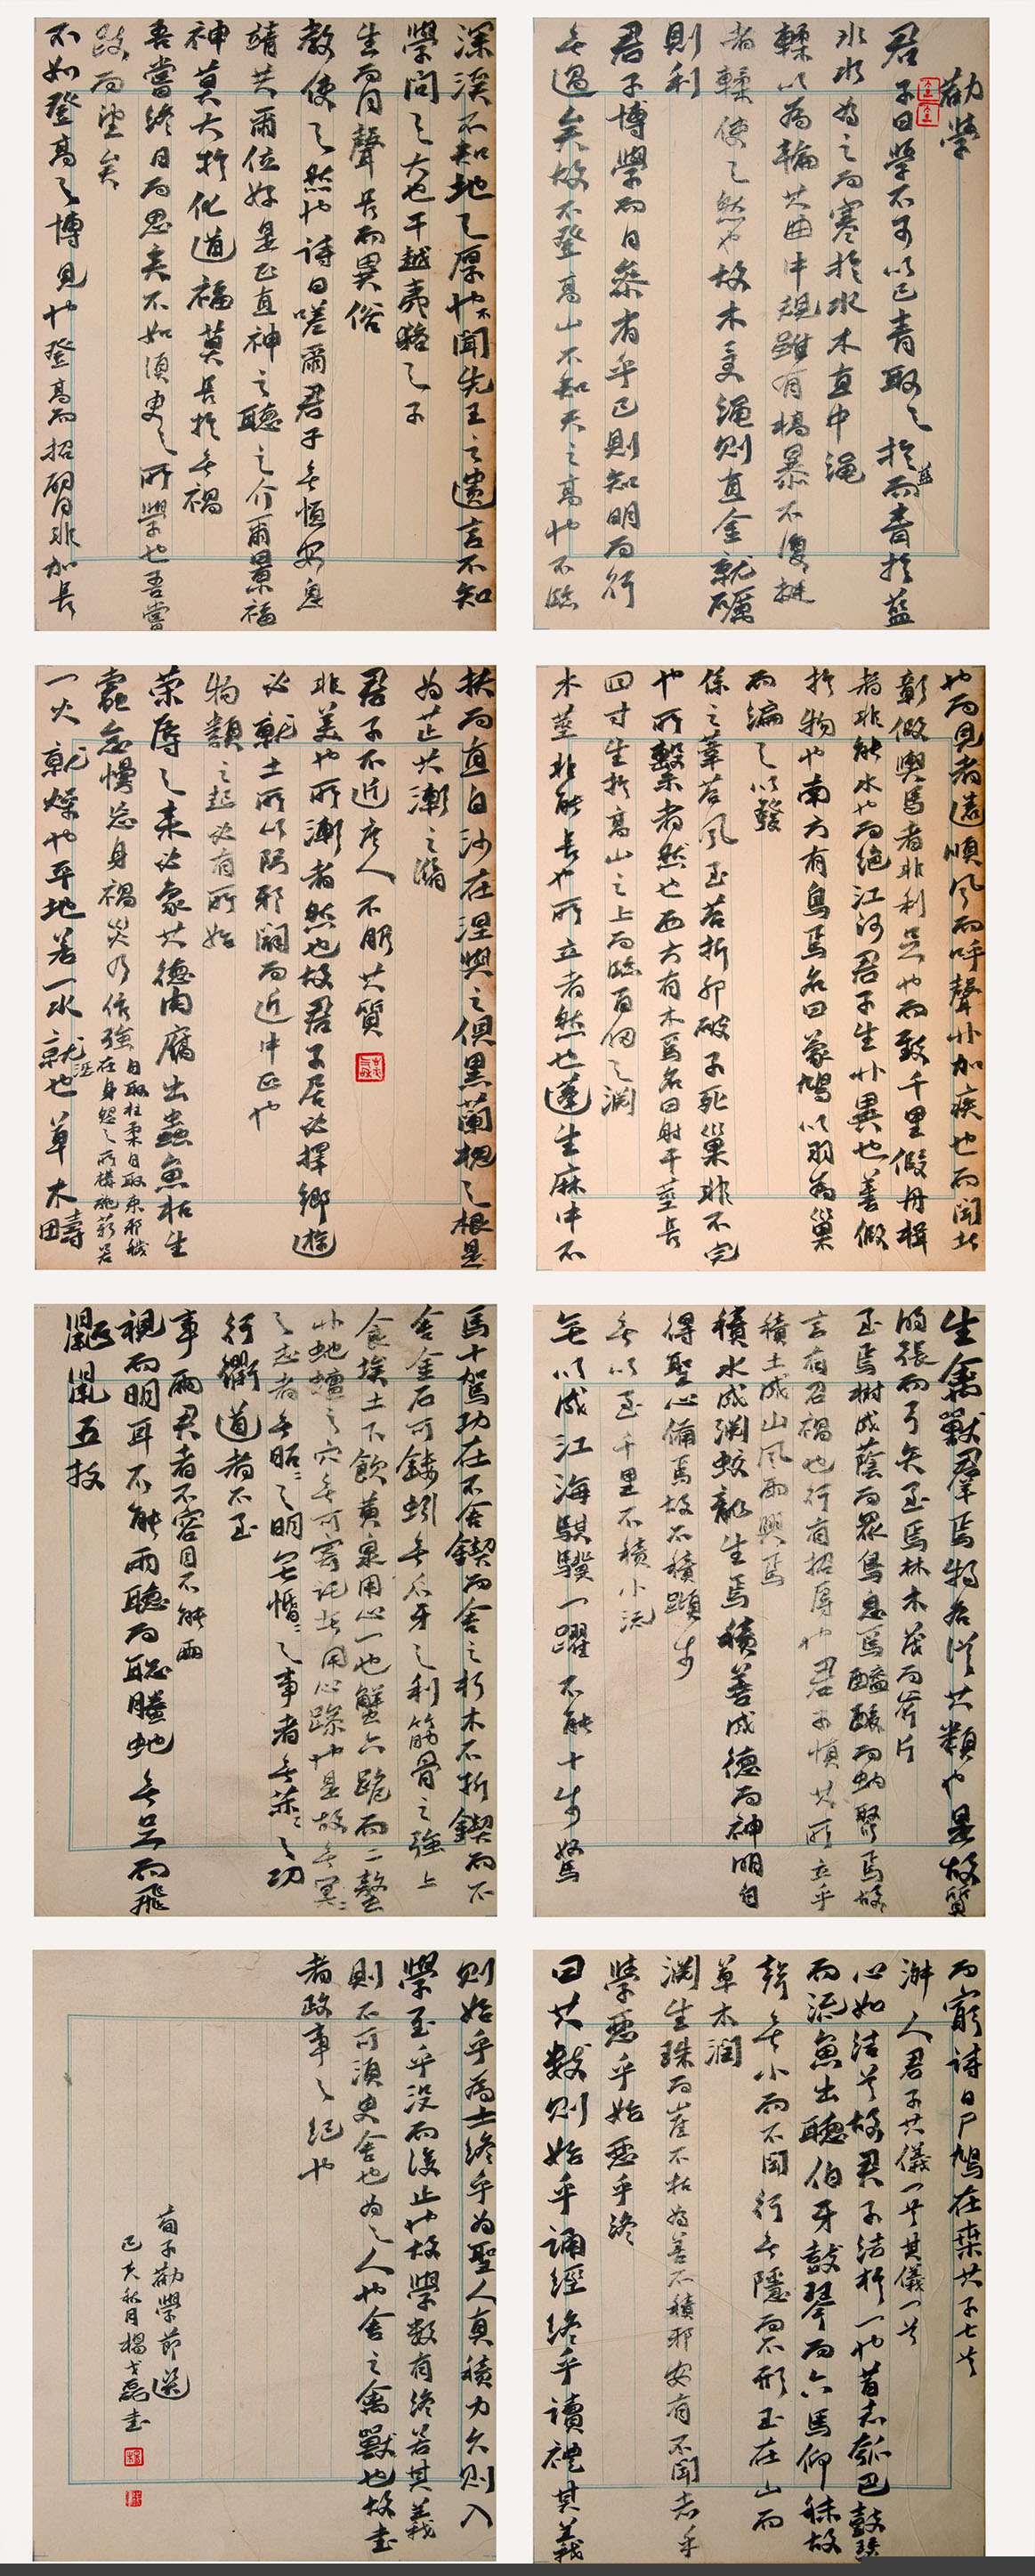 勸學
君子曰學不可以已青取之於藍而青於藍
冰水為之而寒於水木直中繩
輮以為輪其曲中規雖有槁暴不復挺
者輮使之然也故木受繩則直金就礪
則利
君子博學而日參省乎己則知明而行
無過矣故不登高山不知天之高也不臨
深溪不知地之厚也不聞先王之遺言不知
學問之大也干越夷貉之子
生而同聲長而異俗
教使之然也詩曰嗟爾君子無恒安息
靖共爾位好是正直神之聽之介爾景福
神莫大於化道福莫長於無禍
吾嘗終日而思矣不如須臾之所學也吾嘗
跂而望矣
不如登高之博見也登高而招臂非加長
也而見者遠順風而呼聲非加疾也而聞者
彰假輿馬者非利足也而致千里假舟楫
者非能水也而絕江河君子生非異也善假
於物也南方有鳥焉名曰蒙鳩以羽為巢
而編之以發
係之葦苕風至苕折卵破子死巢非不完
也所繫者然也西方有木焉名曰射干莖長
四寸生於高山之上而臨百仞之淵
木莖非能長也所立者然也蓬生麻中不
扶而直白沙在涅與之俱黑蘭槐之根是
為芷其漸之滫
君子不近庶人不服其質
非美也所漸者然也故君子居必擇鄉遊
必就士所以防邪闢而近中正也
物類之起必有所始
榮辱之來必象其德肉腐出蟲魚枯生
蠹怠慢忘身禍災乃作強自取柱柔自取束邪穢
在身怨之所構施薪若
一火就燥也平地若一水就濕也草木疇
生禽獸群焉物各從其類也是故質
的張而弓矢至焉林木茂而斧斤
至焉樹成蔭而眾鳥息焉醯酸而蚋聚焉故
言有召禍也行有招辱也君子慎其所立乎
積土成山風雨興焉
積水成淵蛟龍生焉積善成德而神明自
得聖心備焉故不積蹞步
無以至千里不積小流
無以成江海騏驥一躍不能十步駑
馬十駕功在不舍鍥而舍之朽木不折鍥而不
舍金石可鏤蚓無爪牙之利筋骨之強上
食埃土下飲黃泉用心一也蟹六跪而二螯
非蛇蟺之穴無可寄託者用心躁也是故無冥冥
之志者無昭昭之明無惛惛之事者無赫赫之功
行衢道者不至
事兩君者不容目不能兩
視而明耳不能兩聽而聰螣蛇無足而飛
鼫鼠五技
而窮詩曰尸鳩在桑其子七兮
淑人君子其儀一兮其儀一兮
心如結兮故君子結於一也昔者瓠巴鼓瑟
而流魚出聽伯牙鼓琴而六馬仰秣故
聲無小而不聞行無隱而不形玉在山而
草木潤
淵生珠而崖不枯為善不積邪安有不聞者乎
學惡乎始惡乎終
曰其數則始乎誦經終乎讀禮其義
則始乎為士終乎為聖人真積力久則入
學至乎沒而後止也故學數有終若其義
則不可須臾舍也為之人也舍之禽獸也故書
者政事之紀也
荀子勸學節選
己亥秋月楊戈磊書